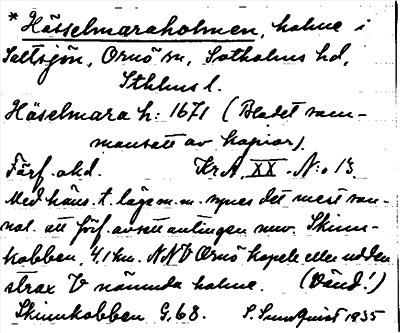 * Hässelmaraholmen, holme i
Saltsjön, Ornö sn, Sotholms hd,
Sthlms l.
Häselmara h: 1671 (Bladet sam-
mansatt av kopior).
Förf. okd. Kr.A. XX. N:o 13.
Med häns. t. läge m.m. synes det mest san-
nol. att förf. avsett antingen nuv. Skinn-
kobben, 4.1 km. NNV Ornö kapell eller udden
strax V nämnda holme. (Vänd!)
Skinnkobben G.68. S. Sundquist 1935